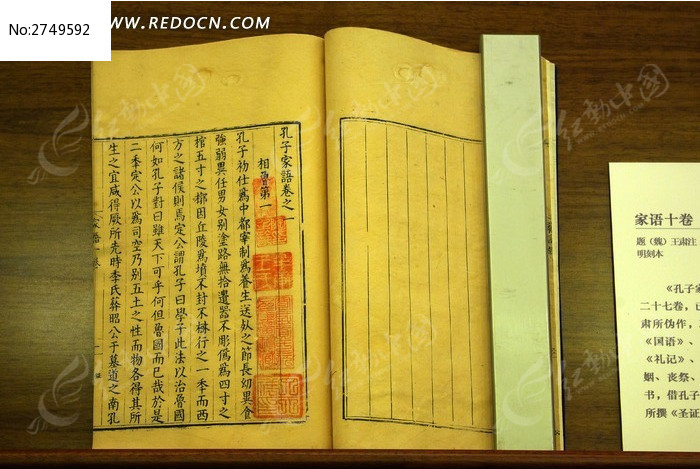 http://www.redocn.com
No:2749592
孔子家語卷之一
相魯第一
孔子初仕爲中都宰制爲養生送死之節長幼異食
強弱異任男女别塗路無拾遺器不彫僞爲四寸之
棺五寸之槨因丘陵爲墳不封不樹行之一季而西
方之諸侯則焉定公謂孔子曰學子此法以治魯國
何如孔子對曰雖天下可乎何但魯國而已哉於是
二季定公以爲司空乃别五土之性而物各得其所
生之宜咸得厥所先時季氏葬昭公于墓道之南孔
家语十卷
题（魏）王肃注
明刻本
《孔子家
二十七卷，已
肃所伪作，
《国语》、
《礼记》、
姻、丧祭、
书，借孔子
所撰《圣证